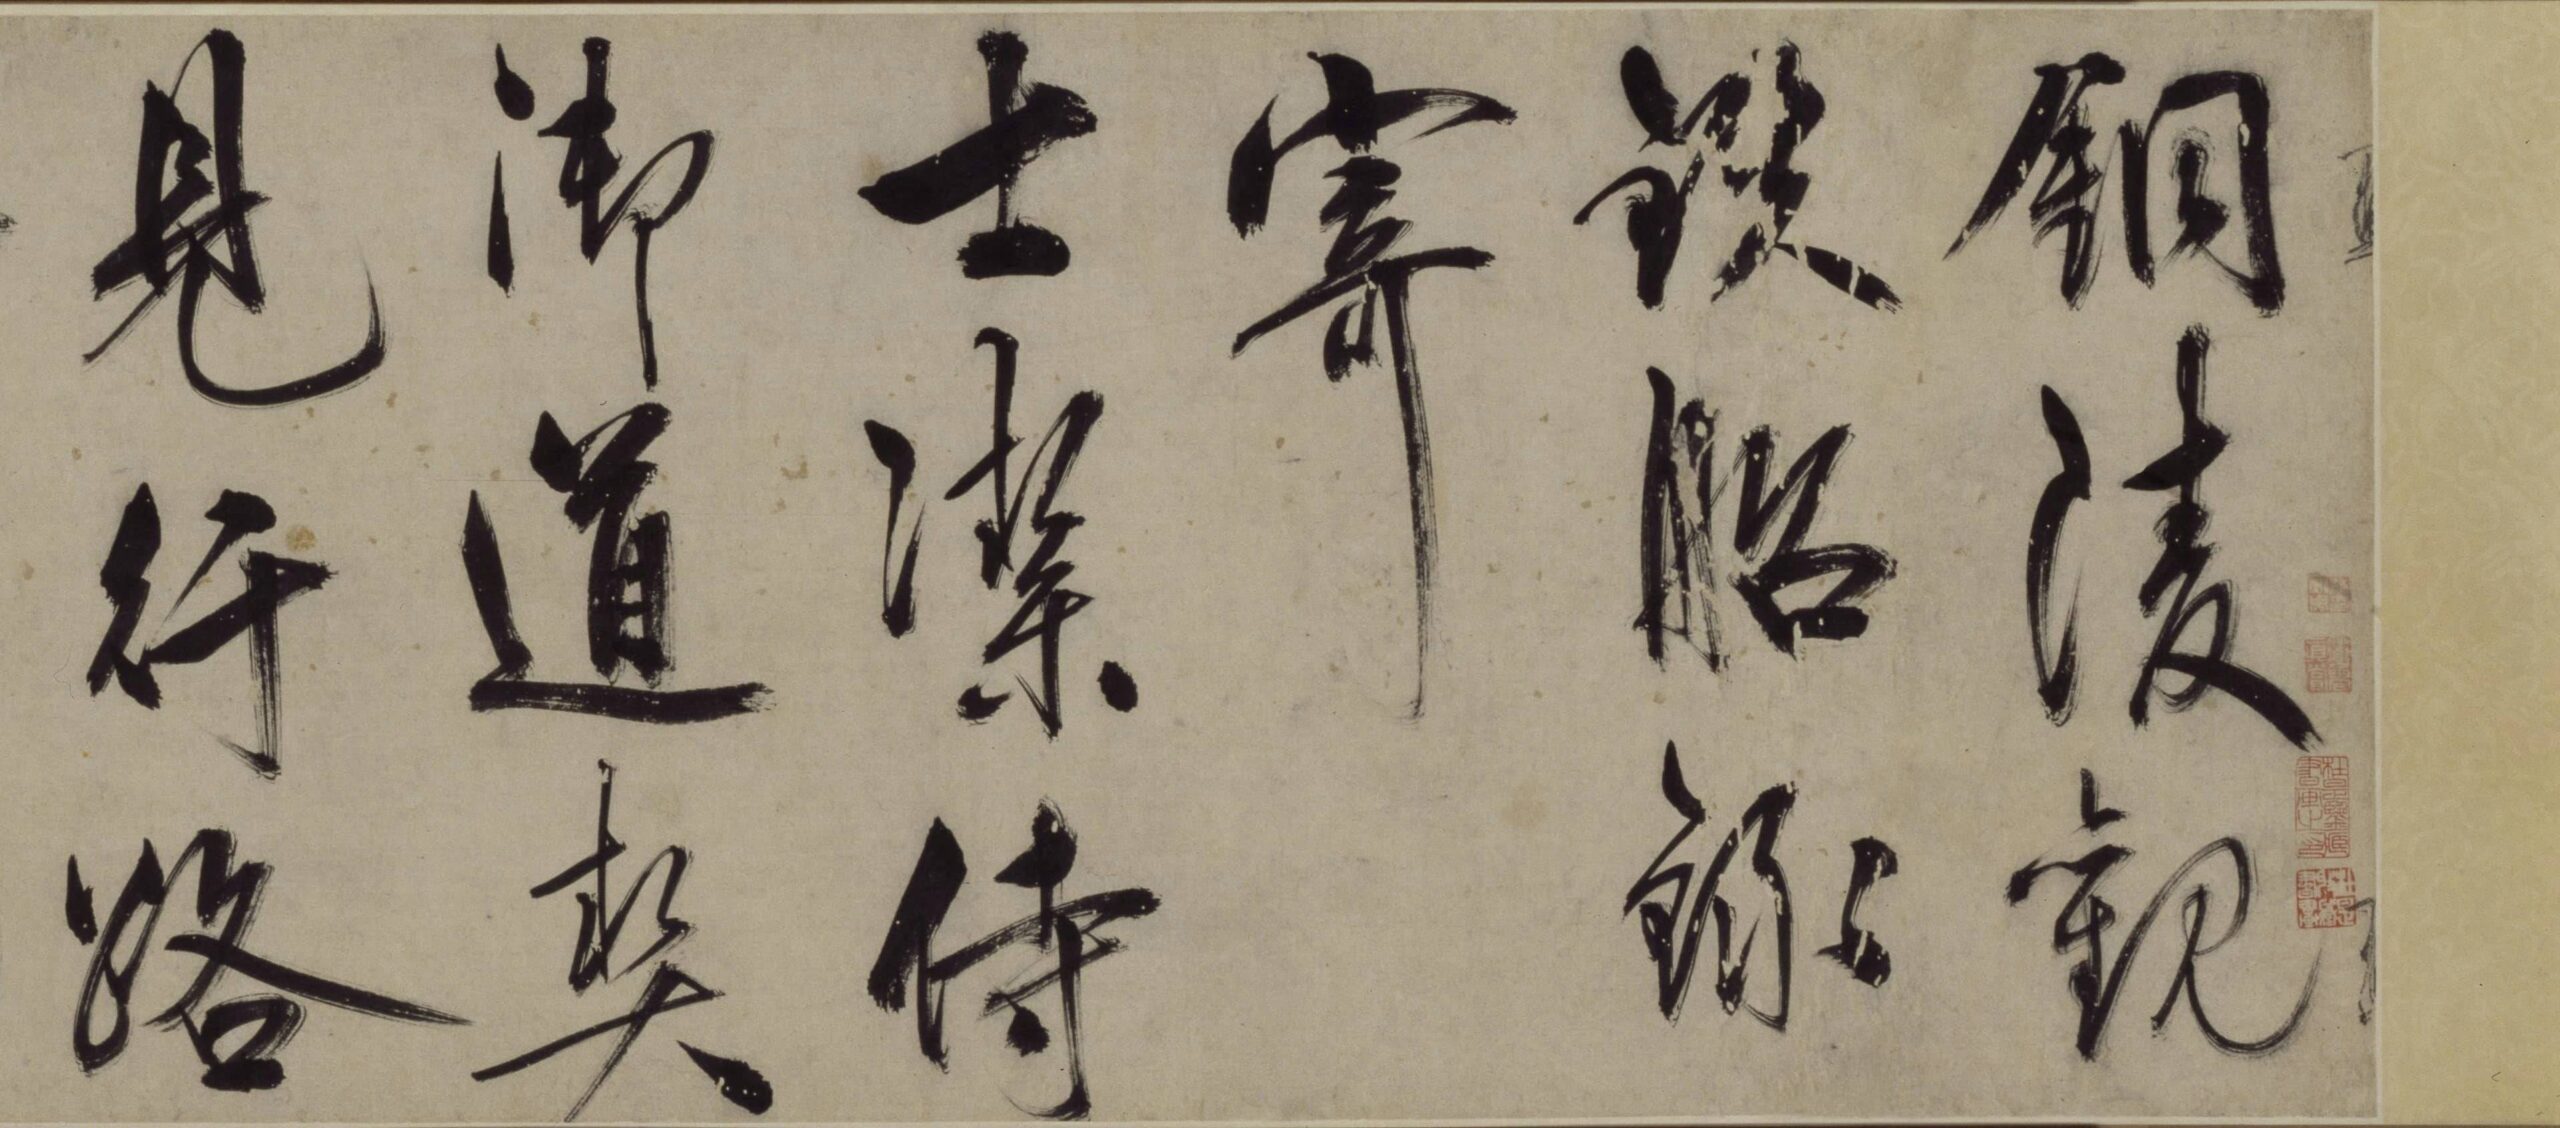 銅陵觀
鐵船錄
寄
士潔侍
御道契
見行路